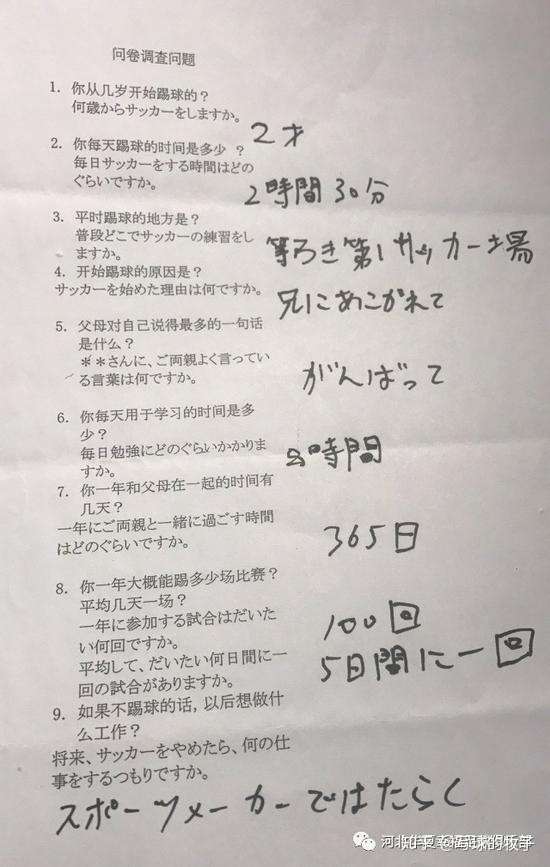 问卷调查问题
1. 你从几岁开始踢球的？
何歳からサッカーをしますか。
2才
2. 你每天踢球的时间是多少 ？
毎日サッカーをする時間はどの
ぐらいですか。
2時間30分
3. 平时踢球的地方是？
普段どこでサッカーの練習をし
ますか。
等ろき第1サッカー場
4. 开始踢球的原因是？
サッカーを始めた理由は何ですか。
兄にあこがれて
5. 父母对自己说得最多的一句话
是什么？
＊＊さんに、ご両親よく言ってい
る言葉は何ですか。
がんばって
6. 你每天用于学习的时间是多
少？
毎日勉強にどのぐらいかかりま
すか。
時間
7. 你一年和父母在一起的时间有
几天？
一年にご両親と一緒に過ごす時間
はどのぐらいですか。
365日
8. 你一年大概能踢多少场比赛？
平均几天一场？
一年に参加する試合はだいた
い何回ですか。
平均して、だいたい何日間に一
回の試合がありますか。
100回
5日間に一回
9. 如果不踢球的话，以后想做什
么工作？
将来、サッカーをやめたら、何の仕
事をするつもりですか。
スポーツメーカーではたらく
知乎 @踢球的牧子